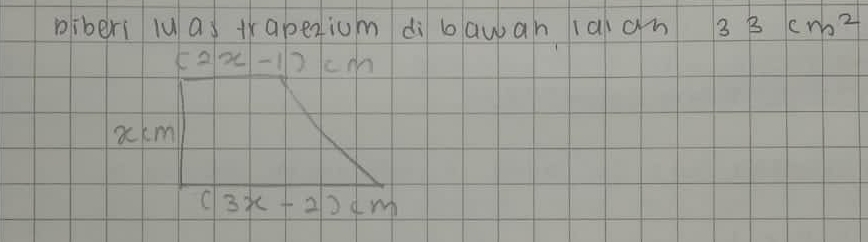 Diberi luas trapezium di bawah ialah 33 cm²
(2x - 1) cm
x cm
(3x - 2) cm